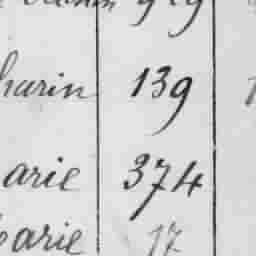 hurin 139
arie 374
arie 17